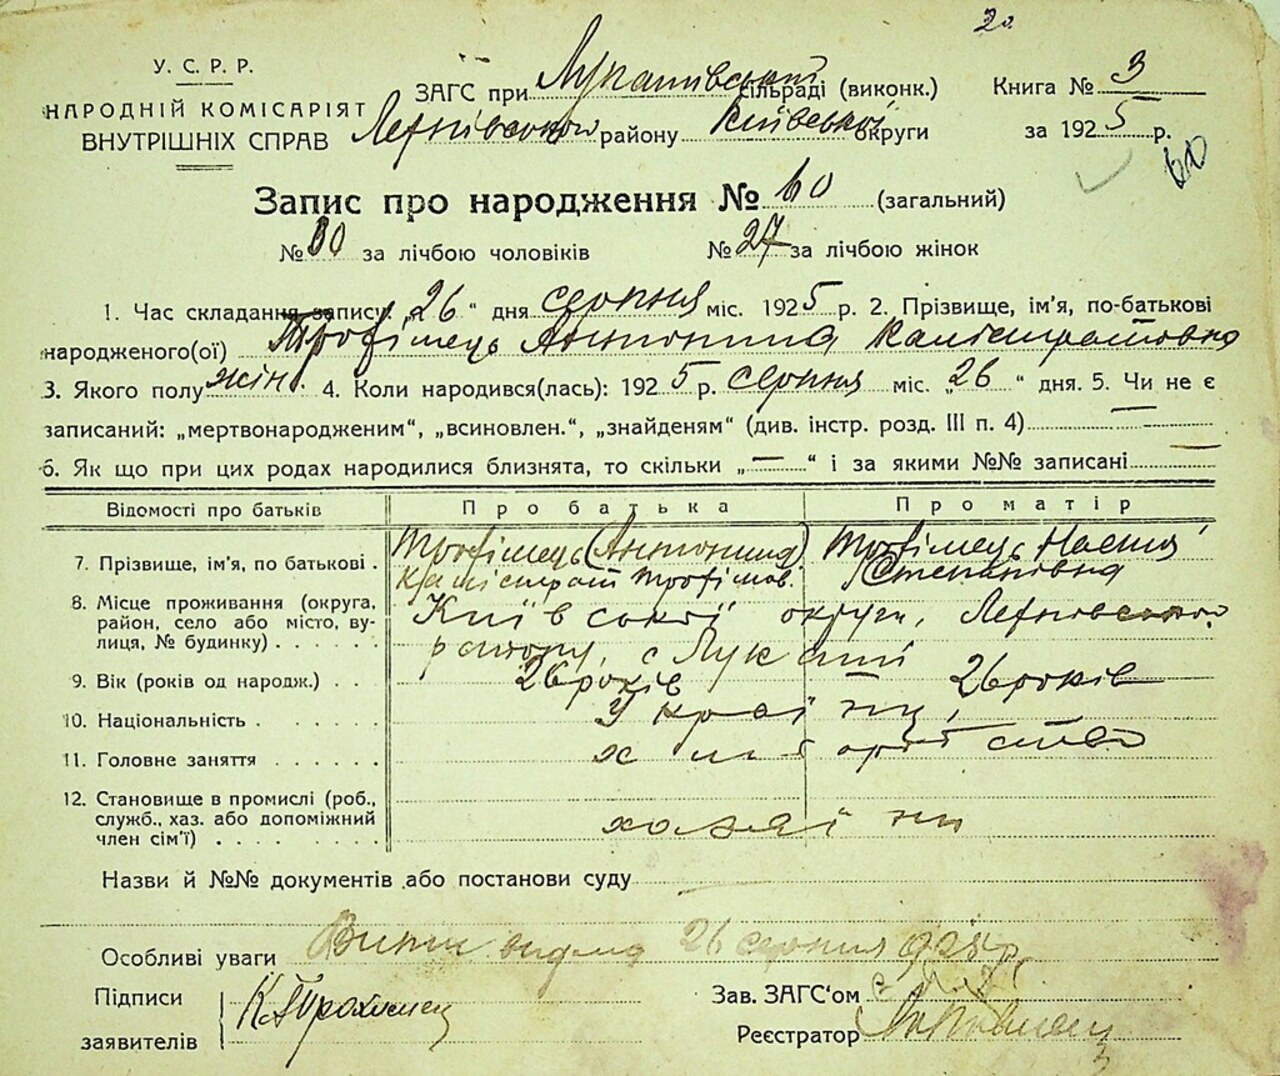 20
У. С. Р. Р.
НАРОДНІЙ КОМІСАРІЯТ
ВНУТРІШНІХ СПРАВ
ЗАГС при Лукашівський сільраді (виконк.)
району Київської округи
Книга № 3
за 1925 р.
60
Запис про народження № 60 (загальний)
№ 30 за лічбою чоловіків № 27 за лічбою жінок
1. Час складання запису „26“ дня серпня міс. 1925 р. 2. Прізвище, ім’я, по-батькові
народженого(ої) Трофімець Антонина Калістратовна
3. Якого полу жін. 4. Коли народився(лась): 1925 р. серпня міс. „26“ дня. 5. Чи не є
записаний: „мертвонародженим“, „всиновлен.“, „знайденям“ (див. інстр. розд. III п. 4) —
6. Як що при цих родах народилися близнята, то скільки „—“ і за якими №№ записані —
Відомості про батьків Про батька Про матір
7. Прізвище, ім’я, по батькові . Трофімець (Антонина) Калістрат Трофімов. Трофімець Настя Степанівна
8. Місце проживання (округа, район, село або місто, вулиця, № будинку) . . . . . . Київської округи, району, с Лукаші
9. Вік (років од народж.) . . 26 років 26 років
10. Національність . . . . . . Українці
11. Головне заняття . . . . . . хліборобство
12. Становище в промислі (роб., служб., хаз. або допоміжний член сім’ї) . . . . . . . хазяїни
Назви й №№ документів або постанови суду
Особливі уваги видана 26 серпня 925 р.
Підписи
заявителів К. Трохимец
Зав. ЗАГС‘ом
Реєстратор